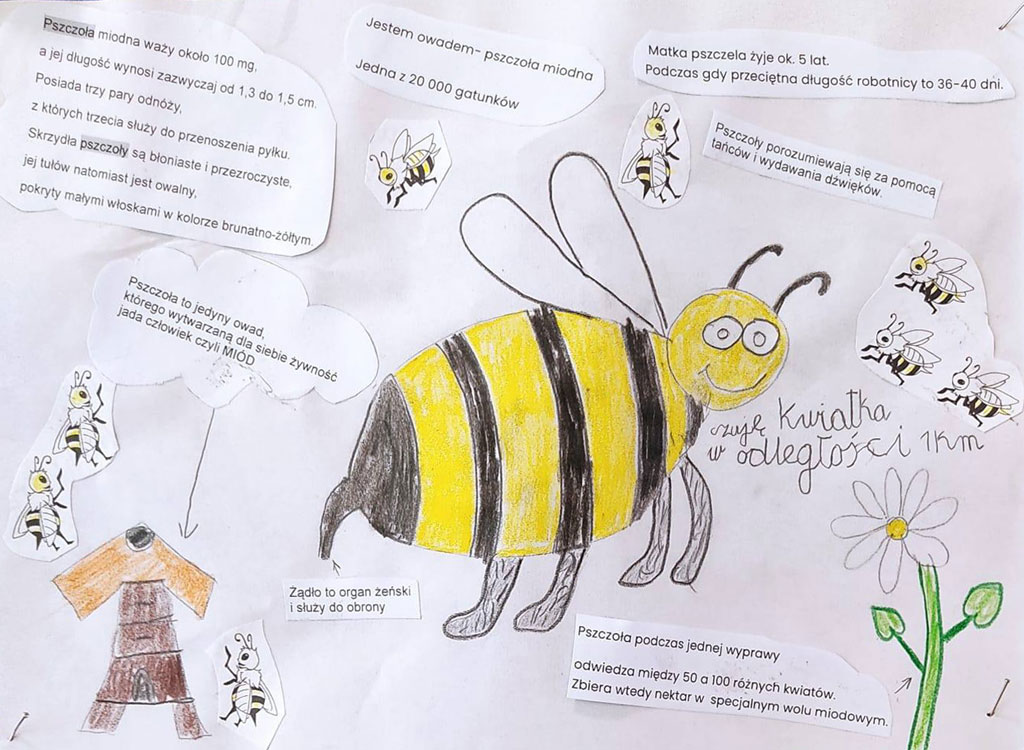 Pszczoła miodna waży około 100 mg,
a jej długość wynosi zazwyczaj od 1,3 do 1,5 cm.
Posiada trzy pary odnóży,
z których trzecia służy do przenoszenia pyłku.
Skrzydła pszczoły są błoniaste i przezroczyste,
jej tułów natomiast jest owalny,
pokryty małymi włoskami w kolorze brunatno-żółtym.
Jestem owadem- pszczoła miodna
Jedna z 20 000 gatunków
Matka pszczela żyje ok. 5 lat.
Podczas gdy przeciętna długość robotnicy to 36-40 dni.
Pszczoły porozumiewają się za pomocą
tańców i wydawania dźwięków.
Pszczoła to jedyny owad,
którego wytwarzaną dla siebie żywność
jada człowiek czyli MIÓD
czuję kwiatka
w odległości 1km
Żądło to organ żeński
i służy do obrony
Pszczoła podczas jednej wyprawy
odwiedza między 50 a 100 różnych kwiatów.
Zbiera wtedy nektar w specjalnym wolu miodowym.